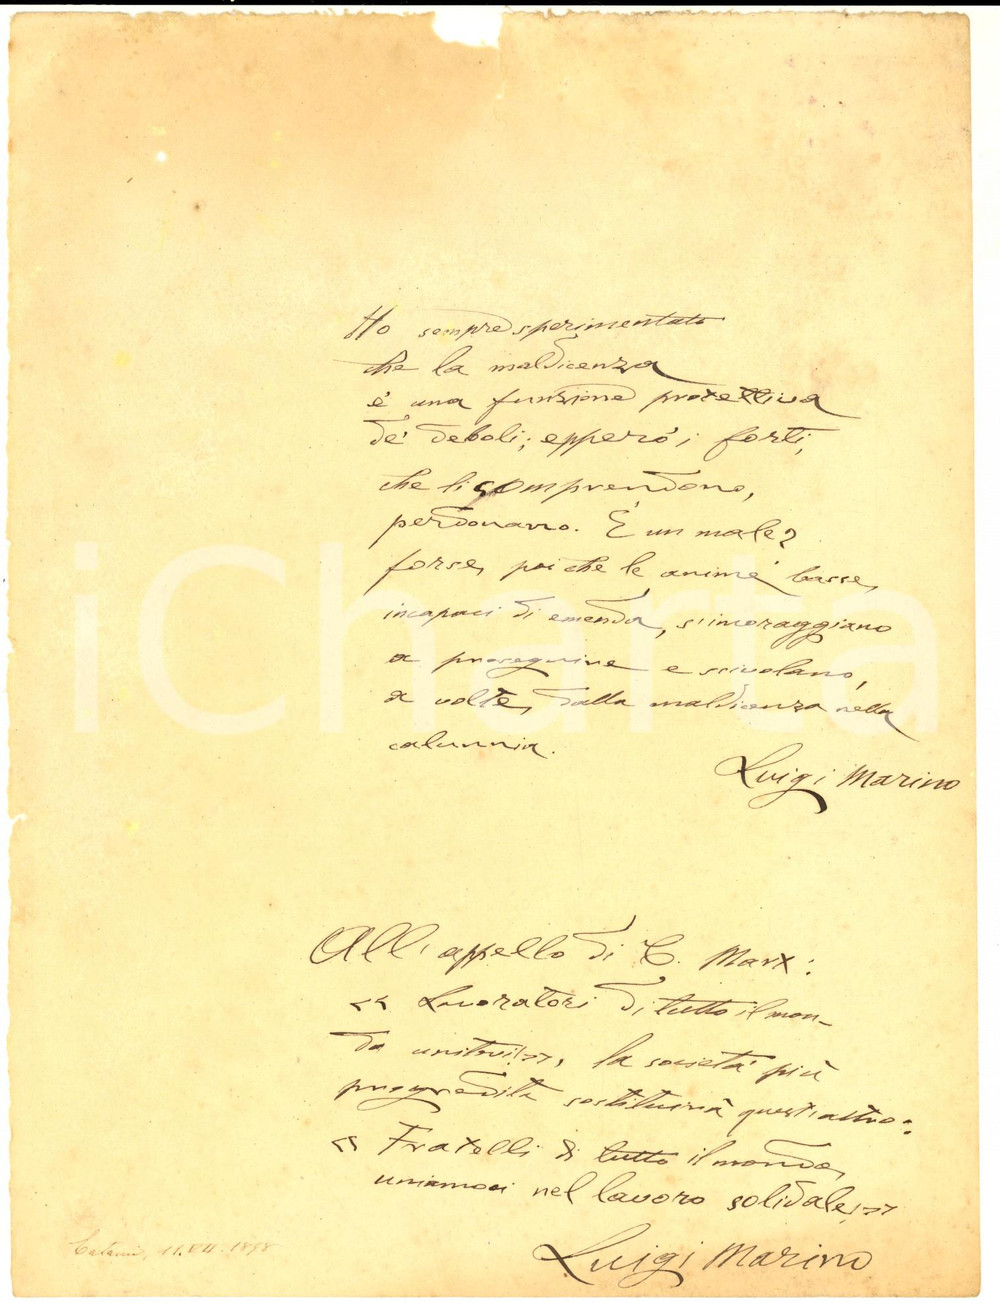 Ho sempre sperimentato
che la maldicenza
è una funzione protettiva
de' deboli; epperò i forti,
che li comprendono,
perdonano. È un male?
forse, poi che le anime basse,
incapaci di emenda, s'incoraggiano
a proseguire e scivolano,
a volte, dalla maldicenza nella
calunnia.
Luigi Marino
All'appello di C. Marx:
« Lavoratori di tutto il mon-
do unitevi!», la società più
progredita sostituirà quest'altro:
« Fratelli di tutto il mondo,
uniamoci nel lavoro solidale!»
Luigi Marino
Catania, 11.VII.1898
iCharta